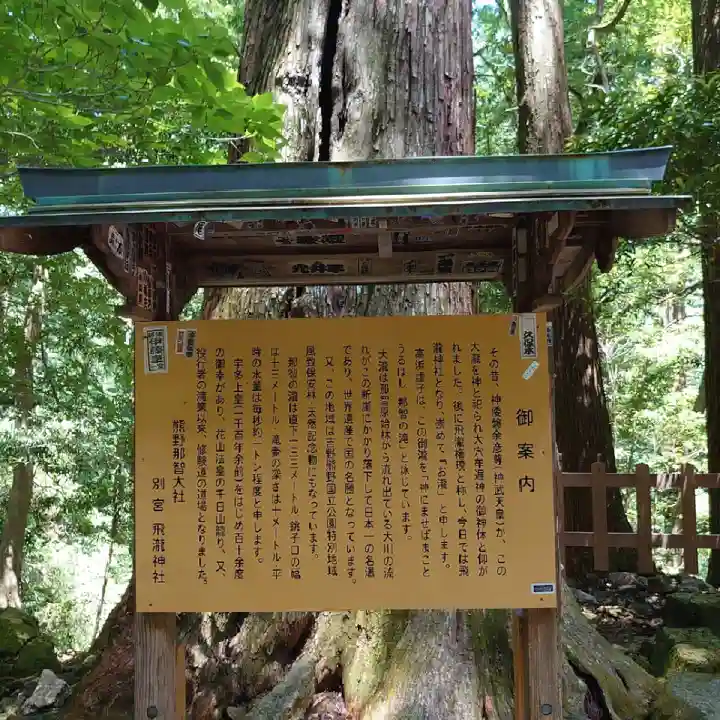 御案内
その昔、神倭磐余彦尊(神武天皇)が、この
大瀧を神と祀られ大穴牟遅神の御神体と仰が
れました、後に飛瀧権現と称し、今日では飛
瀧神社となり、崇めて「お瀧」と申します。
高浜虚子は、この御瀧を「神にませばまこと
うるはし 那智の滝」と詠じています。
大瀧は那智原始林から流れ出ている大川の流
れがこの断崖にかかり落下して日本一の名瀑
であり、世界遺産で国の名勝となっています。
又、この地域は吉野熊野国立公園特別地域
風致保安林、天然記念物にもなっています。
那智の瀧は直下一三三メートル 銚子口の幅
は十三メートル 滝壷の深さは十メートル 平
時の水量は毎秒約一トン程度と申します。
宇多上皇(一千百年余前)をはじめ百十余度
の御幸があり、花山法皇の千日山籠り、又、
役行者の滝業以来、修験道の道場となりました。
熊野那智大社
別宮 飛瀧神社